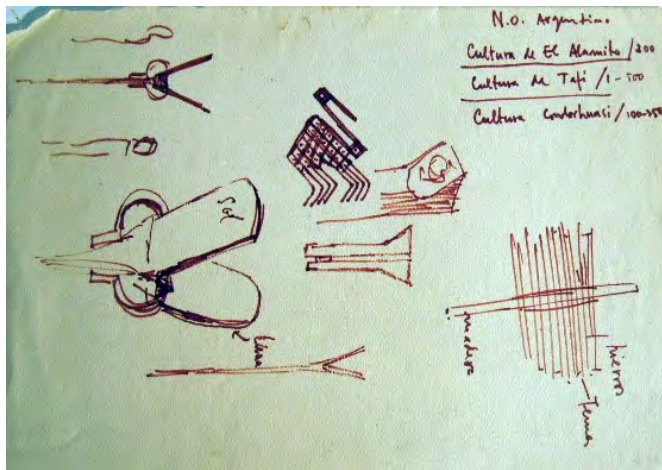 N.O. Argentino
Cultura de El Alamito / 200
Cultura de Tafi / 1-500
Cultura Condorhuasi / 100-350
Sol
Luna
madera
hierros